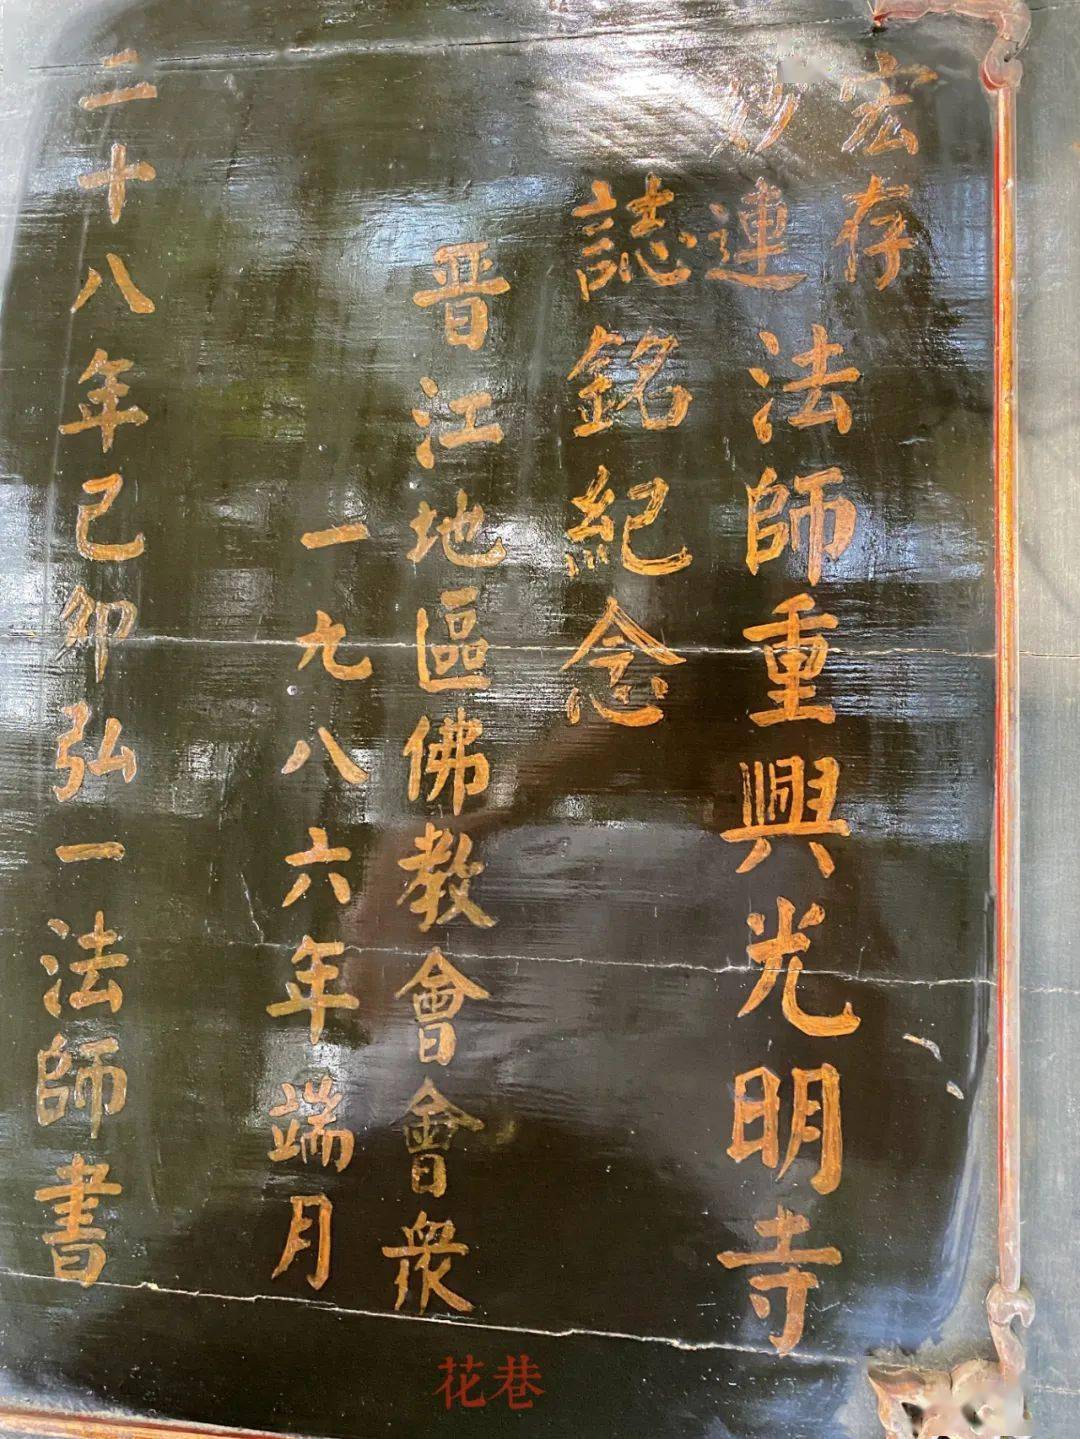 宏存
連
法師重興光明寺
誌銘紀念
晋江地區佛教會會衆
一九八六年端月
二十八年己卯弘一法師書
花巷